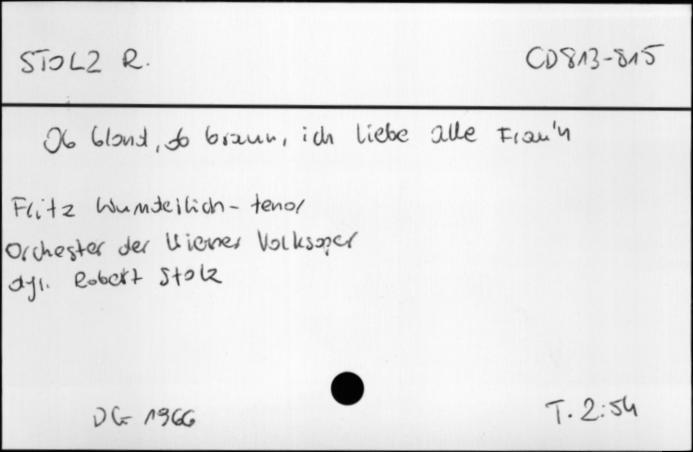 STOLZ R. CD 813-815
Ob blond, ob braun, ich liebe alle Frau'n
Fritz Wunderlich - tenor
Orchester der Wiener Volksoper
dyr. Robert Stolz
DG 1966 T. 2:54